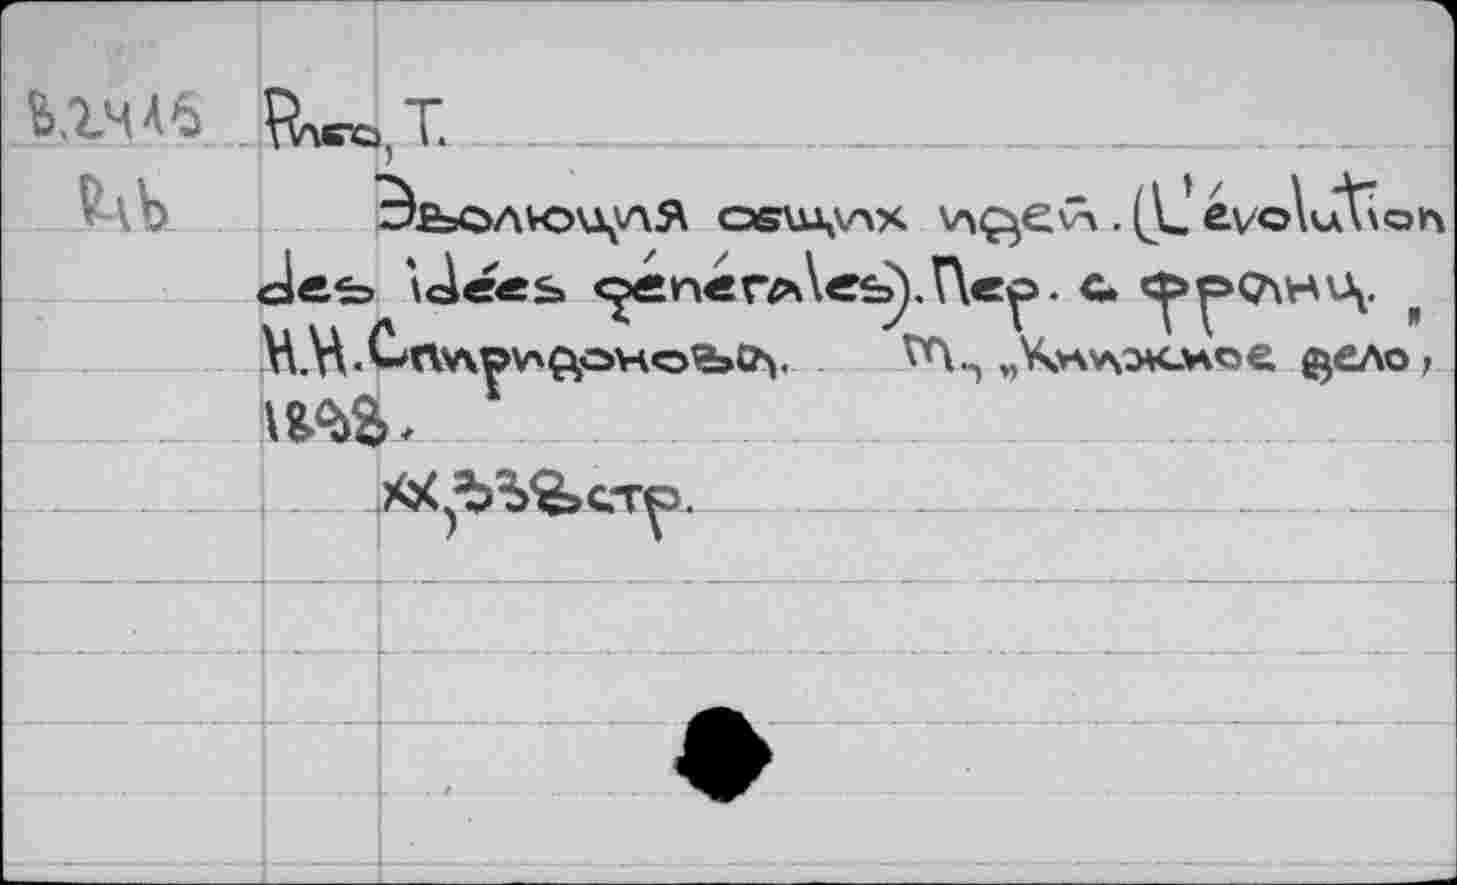 Рибо, Т.
Эволюция общих идей. (L'évolution
des idées générales). Пер. с франц.
Н.Н.Спиридонова. М., „Книжное дело",
1898.
XX, 338 стр.